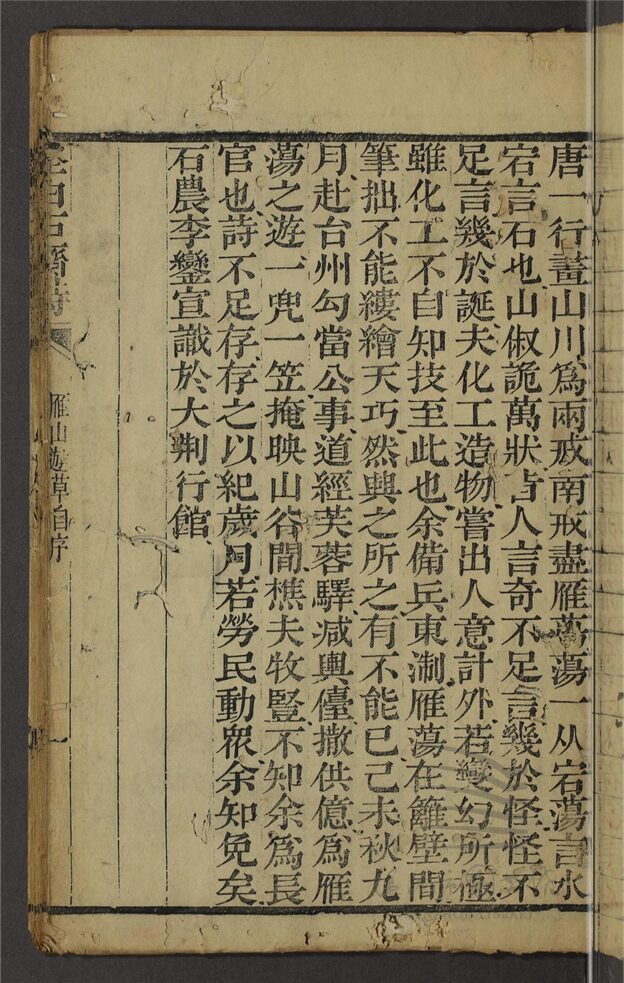 唐一行畫山川爲兩戒南戒盡雁蕩蕩一从宕蕩言水
宕言石也山俶詭萬狀古人言奇不足言幾於怪怪不
足言幾於誕夫化工造物嘗出人意計外若變幻所極
雖化工不自知技至此也余備兵東淛雁蕩在籬壁間
筆拙不能縷繪天巧然興之所之有不能已己未秋九
月赴台州勾當公事道經芙蓉驛减輿儓撤供億爲雁
蕩之遊一兜一笠掩映山谷間樵夫牧豎不知余爲長
官也詩不足存存之以紀歲月若勞民動衆余知免矣
石農李鑾宣識於大荆行館
白石齋詩
雁山遊草自序
一